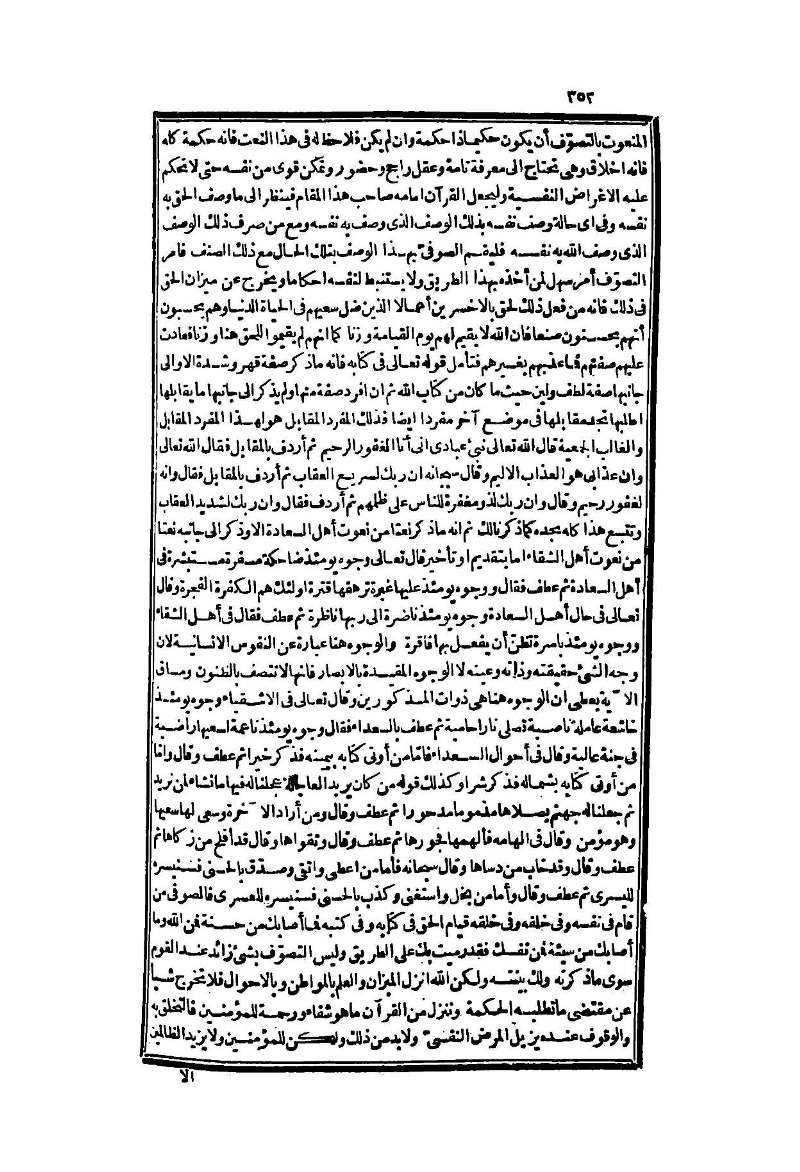 ٣٥٢
المنعوت بالتصوّف أن يكون حكيما ذا حكمة وان لم يكن فلا حظ له فى هذا النعت فانه حكمة كله
فانه اخلاق وهى تحتاج الى معرفة تامة وعقل راجح وحضور وتمكن قوى من نفسه حتى لا تحكم
عليه الاغراض النفسية وليجعل القرآن امامه صاحب هذا المقام فينظر الى ما وصف الحق به
نفسه وفى اى حالة وصف نفسه بذلك الوصف الذى وصف به نفسه ومع من صرف ذلك الوصف
الذى وصف الله به نفسه فليقم الصوفىّ بهذا الوصف بتلك الحال مع ذلك الصنف فامر
التصوّف أمر سهل لمن أخذه بهذا الطريق ولا يستنبط لنفسه احكاما ويخرج عن ميزان الحق
فى ذلك فانه من فعل ذلك لحق بالاخسرين أعمالا الذين ضل سعيهم فى الحياة الدنيا وهم يحسبون
أنهم يحسنون صنعا فان الله لا يقيم لهم يوم القيامة وزنا كما انهم لم يقيموا للحق هنا وزنا فعادت
عليهم صفتهم فما عذبهم بغيرهم فتأمل قوله تعالى فى كتابه فانه ما ذكر صفة قهر وشدة الا والى
جانبها صفة لطف ولين حيث ما كان من كتاب الله ثم ان افرد صفة منها ولم يذكر الى جانبها ما يقابلها
اطلبها تجد مقابلها فى موضع آخر مفردا ايضا فذلك المفرد المقابل هو لهذا المفرد المقابل
والغالب الجمعية قال الله تعالى نبئ عبادى انى أنا الغفور الرحيم ثم أردف بالمقابل فقال الله تعالى
وان عذابى هو العذاب الاليم وقال سبحانه ان ربك لسريع العقاب ثم أردف بالمقابل فقال وانه
لغفور رحيم وقال وان ربك لذو مغفرة للناس على ظلمهم ثم أردف فقال وان ربك لشديد العقاب
وتتبع هذا كله تجده كما ذكرنا لك ثم انه ما ذكر نعتا من نعوت أهل السعادة الا وذكر الى جانبه نعتا
من نعوت أهل الشقاء اما بتقديم او تأخير قال تعالى وجوه يومئذ ضاحكة مسفرة مستبشرة فى
أهل السعادة ثم عطف فقال ووجوه يومئذ عليها غبرة ترهقها قترة اولئك هم الكفرة الفجرة وقال
تعالى فى حال أهل السعادة وجوه يومئذ ناضرة الى ربها ناظرة ثم عطف فقال فى أهل الشقاء
ووجوه يومئذ باسرة تظنّ أن يفعل بها فاقرة والوجوه هنا عبارة عن النفوس الانسانية لان
وجه الشئ حقيقته وذاته وعينه لا الوجوه المقيدة بالابصار فانها لا تتصف بالظنون ومساق
الآية يعطى ان الوجوه هنا هى ذوات المذكورين وقال تعالى فى الاشقياء وجوه يومئذ
خاشعة عاملة ناصبة تصلى نارا حامية ثم عطف بالسعداء فقال وجوه يومئذ ناعمة لسعيها راضية
فى جنة عالية وقال فى أحوال السعداء فامّا من أوتى كتابه بيمينه فذكر خيرا ثم عطف وقال وامّا
من أوتى كتابه بشماله فذكر شرا وكذلك قوله من كان يريد العاجلة عجلنا له فيها ما نشاء لمن نريد
ثم جعلنا له جهنم يصلاها مذموما مدحورا ثم عطف وقال ومن أراد الآخرة وسعى لها سعيها
وهو مؤمن وقال فى الهامه فألهمها فجورها ثم عطف وقال وتقواها وقال قد أفلح من زكاها ثم
عطف وقال وقد خاب من دساها وقال سبحانه فأما من اعطى واتقى وصدّق بالحسنى فسنيسره
لليسرى ثم عطف وقال وأما من بخل واستغنى وكذب بالحسنى فسنيسره للعسرى فالصوفى من
قام فى نفسه وفى خلقه وفى خلقه قيام الحق فى كتابه وفى كتبه فما أصابك من حسنة فمن الله وما
أصابك من سيئة فمن نفسك فقد رميت بك على الطريق وليس التصوّف بشئ زائد عند القوم
سوى ما ذكرته ولك بينته ولكن الله انزل الميزان والعلم بالمواطن وبالاحوال فلا تخرج شيأ
عن مقتضى ما تطلبه الحكمة وننزل من القرآن ما هو شفاء ورحمة للمؤمنين فالتخلق به
والوقوف عنده يزيل المرض النفسىّ ولا بد من ذلك ولكن للمؤمنين ولا يزيد الظالمين
الا